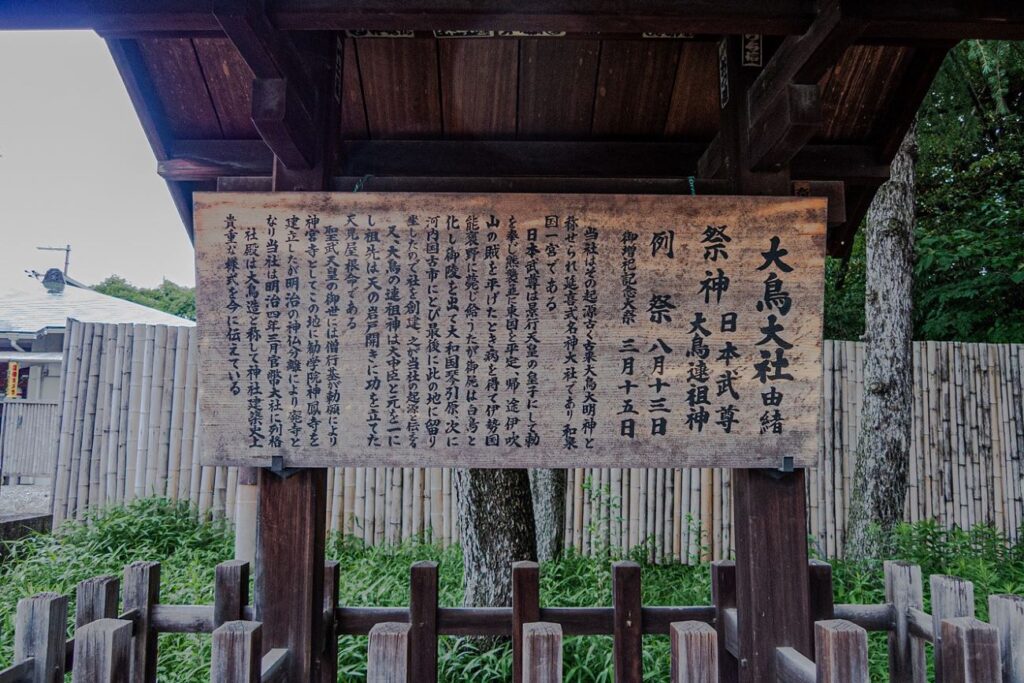 大鳥大社由緒
祭神 日本武尊
大鳥連祖神
例祭 八月十三日
御増祀記念祭 三月十五日
当社はその起源古く古来大鳥大明神と
称せられ延喜式名神大社であり和泉
国一宮である
日本武尊は景行天皇の皇子にして勅
を奉じ熊襲並に東国を平定し帰途伊吹
山の賊を平げたとき病を得て伊勢国
能褒野に薨じ給うたが御屍は白鳥と
化し御陵を出て大和国琴引原次に
河内国古市にとび最後に此の地に留り
坐したので社を創建之が当社の起源と伝う
又、大鳥の連祖神は大中臣と元を一に
し祖先は天の岩戸開きに功を立てた
天児屋根命である
聖武天皇の御世には僧行基が勅願により
神宮寺としてこの地に勧学院神鳳寺を
建立したが明治の神仏分離により廃寺と
なり当社は明治四年三月官幣大社に列格
社殿は大鳥造と称して神社建築史上
貴重な様式を今に伝えている